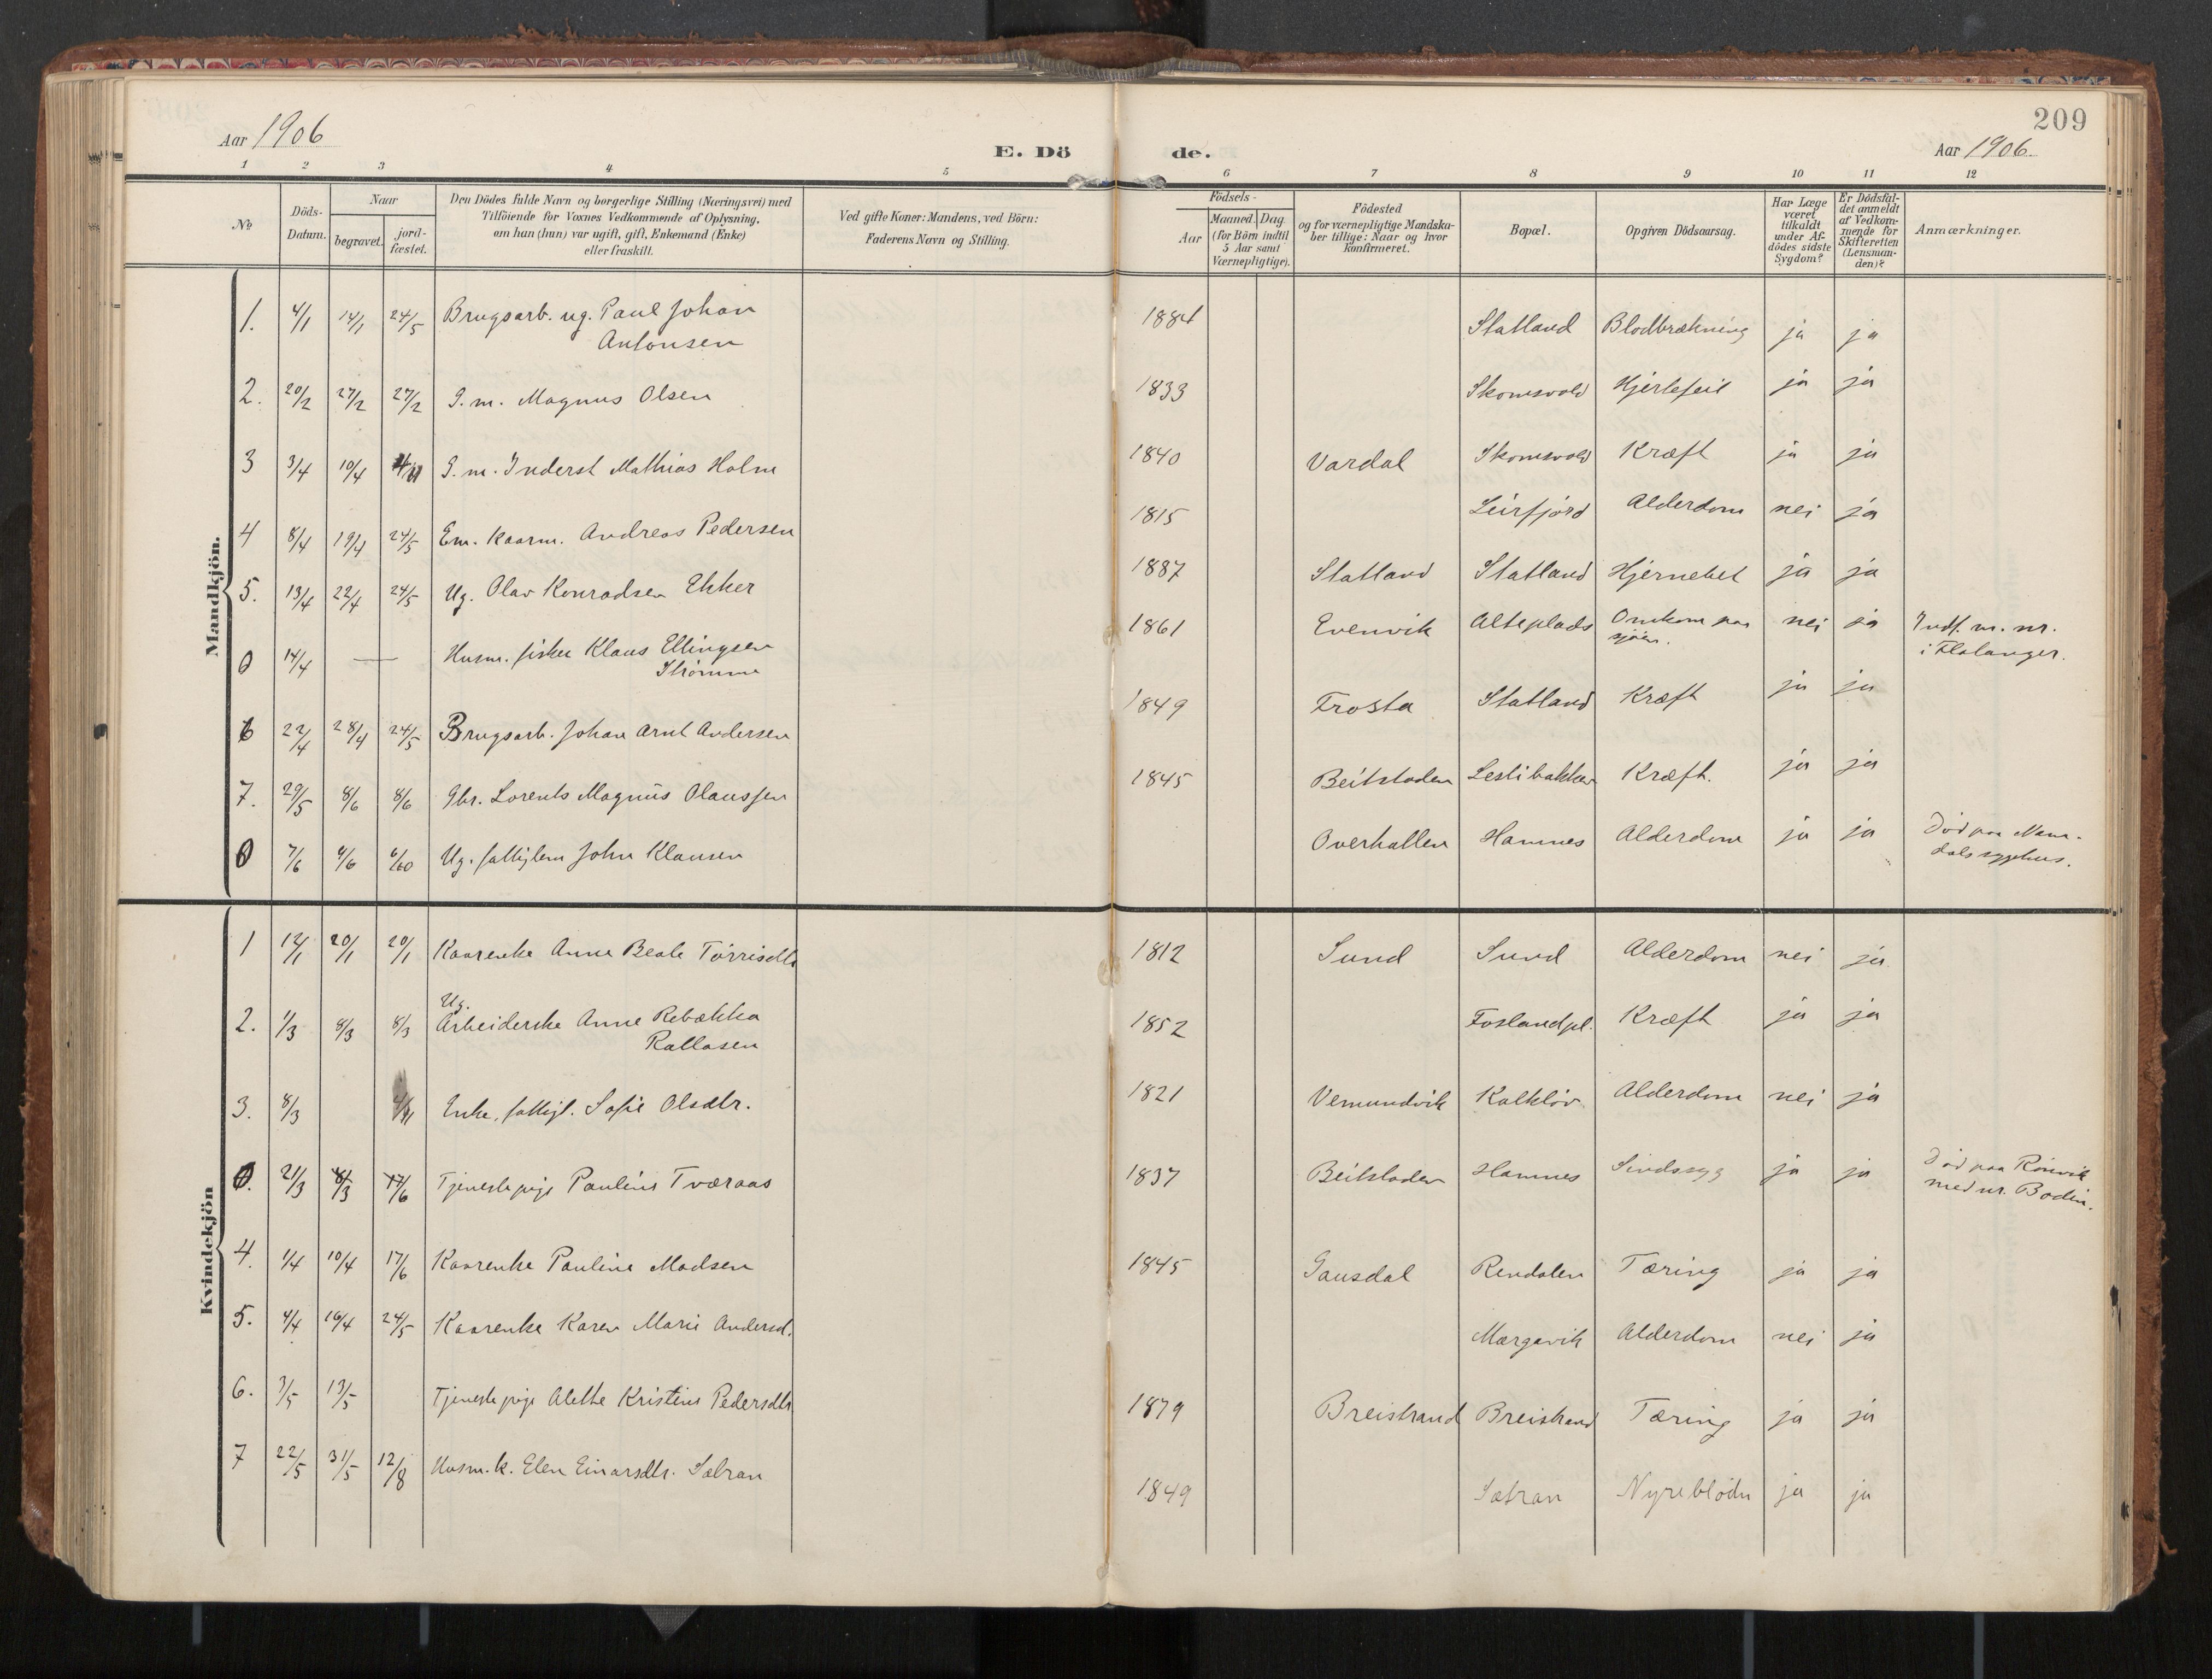 209
Aar 1906
E. Dö de.
Aar 1906.
1 2 3 4 5 6 7 8 9 10 11 12
№
Döds-
Datum.
Naar
begravet.
jord-
fæstet.
Den Dödes fulde Navn og borgerlige Stilling (Næringsvei) med
Tilföiende for Voxnes Vedkommende af Oplysning,
om han (hun) var ugift, gift, Enkemand (Enke)
eller fraskilt.
Ved gifte Koner: Mandens, ved Börn:
Faderens Navn og Stilling.
Födsels-
Aar
Maaned.
Dag.
(for Börn indtil
5 Aar samt
Værnepligtige).
Födested
og for værnepligtige Mandska-
ber tillige: Naar og hvor
konfirmeret.
Bopæl.
Opgiven Dödsaarsag.
Har Læge
været
tilkaldt
under Af-
dödes sidste
Sygdom?
Er Dödsfal-
det anmeldt
af Vedkom-
mende for
Skifteretten
(Lensman-
den)?
Anmærkninger.
Mandkjön.
1. 4/1 14/1 24/5 Brugsarb. ug. Paul Johan 1884 Statland Blodbrækning ja ja
Antonsen
2. 20/2 27/2 27/2 G.m. Magnus Olsen 1833 Skomsvold Hjertefeil ja ja
3 3/4 10/4 G.m. Inderst Mathias Holm 1840 Vardal Skomsvold Kræft ja ja
4 8/4 19/4 24/5 Em. Kaarm. Andreas Pedersen 1815 Leirfjord Alderdom nei ja
5. 13/4 22/4 24/5 Ug. Olav Konradsen Ekker 1887 Statland Statland Hjernebet ja ja
0 14/4 — Husm. fisker Klaus Ellingsen 1861 Evenvik Alteplads Omkom paa nei ja Indf. m. nr.
Strömme sjöen. i Flatanger.
6 22/4 28/4 24/5 Brugsarb. Johan Arnt Andersen 1849 Frosta Statland Kræft ja ja
7. 29/5 8/6 8/6 Gbr. Lorents Magnus Olaussen 1845 Beitstaden Lestibakken Kræft. ja ja
0 7/6 Ug. fattiglem John Klausen Overhallen Hamnes Alderdom ja ja Död paa Nam-
dals sygehus.
Kvindekjön
1 12/1 20/1 20/1 Kaarenke Anne Beate Törrisdtr 1812 Sund Sund Alderdom nei ja
Ug.
2. 1/3 8/3 8/3 Arbeiderske Anne Rebækka 1852 Foslandpl. Kræft ja ja
Rallasen
3. 8/3 Enke, fattigl. Sofie Olsdtr. 1821 Vemundvik Kalkløv Alderdom nei ja
0. 21/3 17/6 Tjenestepige Pauline Tværaas 1837 Beitstaden Hamnes Sindssyg ja ja Död paa Rönvik
med nr. Bodin.
4. 1/4 10/4 17/6 Kaarenke Pauline Madsen 1845 Gausdal Rendalen Tæring ja ja
5. 4/4 16/4 24/5 Kaarenke Karen Marie Andersd. Margavik Alderdom nei ja
6. 3/5 13/5 Tjenestepige Alette Kristine Pedersdtr 1879 Breistrand Breistrand Tæring ja ja
7 22/5 31/5 12/8 Husm.k. Elen Einarsdtr. Satran 1849 Satran Nyreblödn ja ja